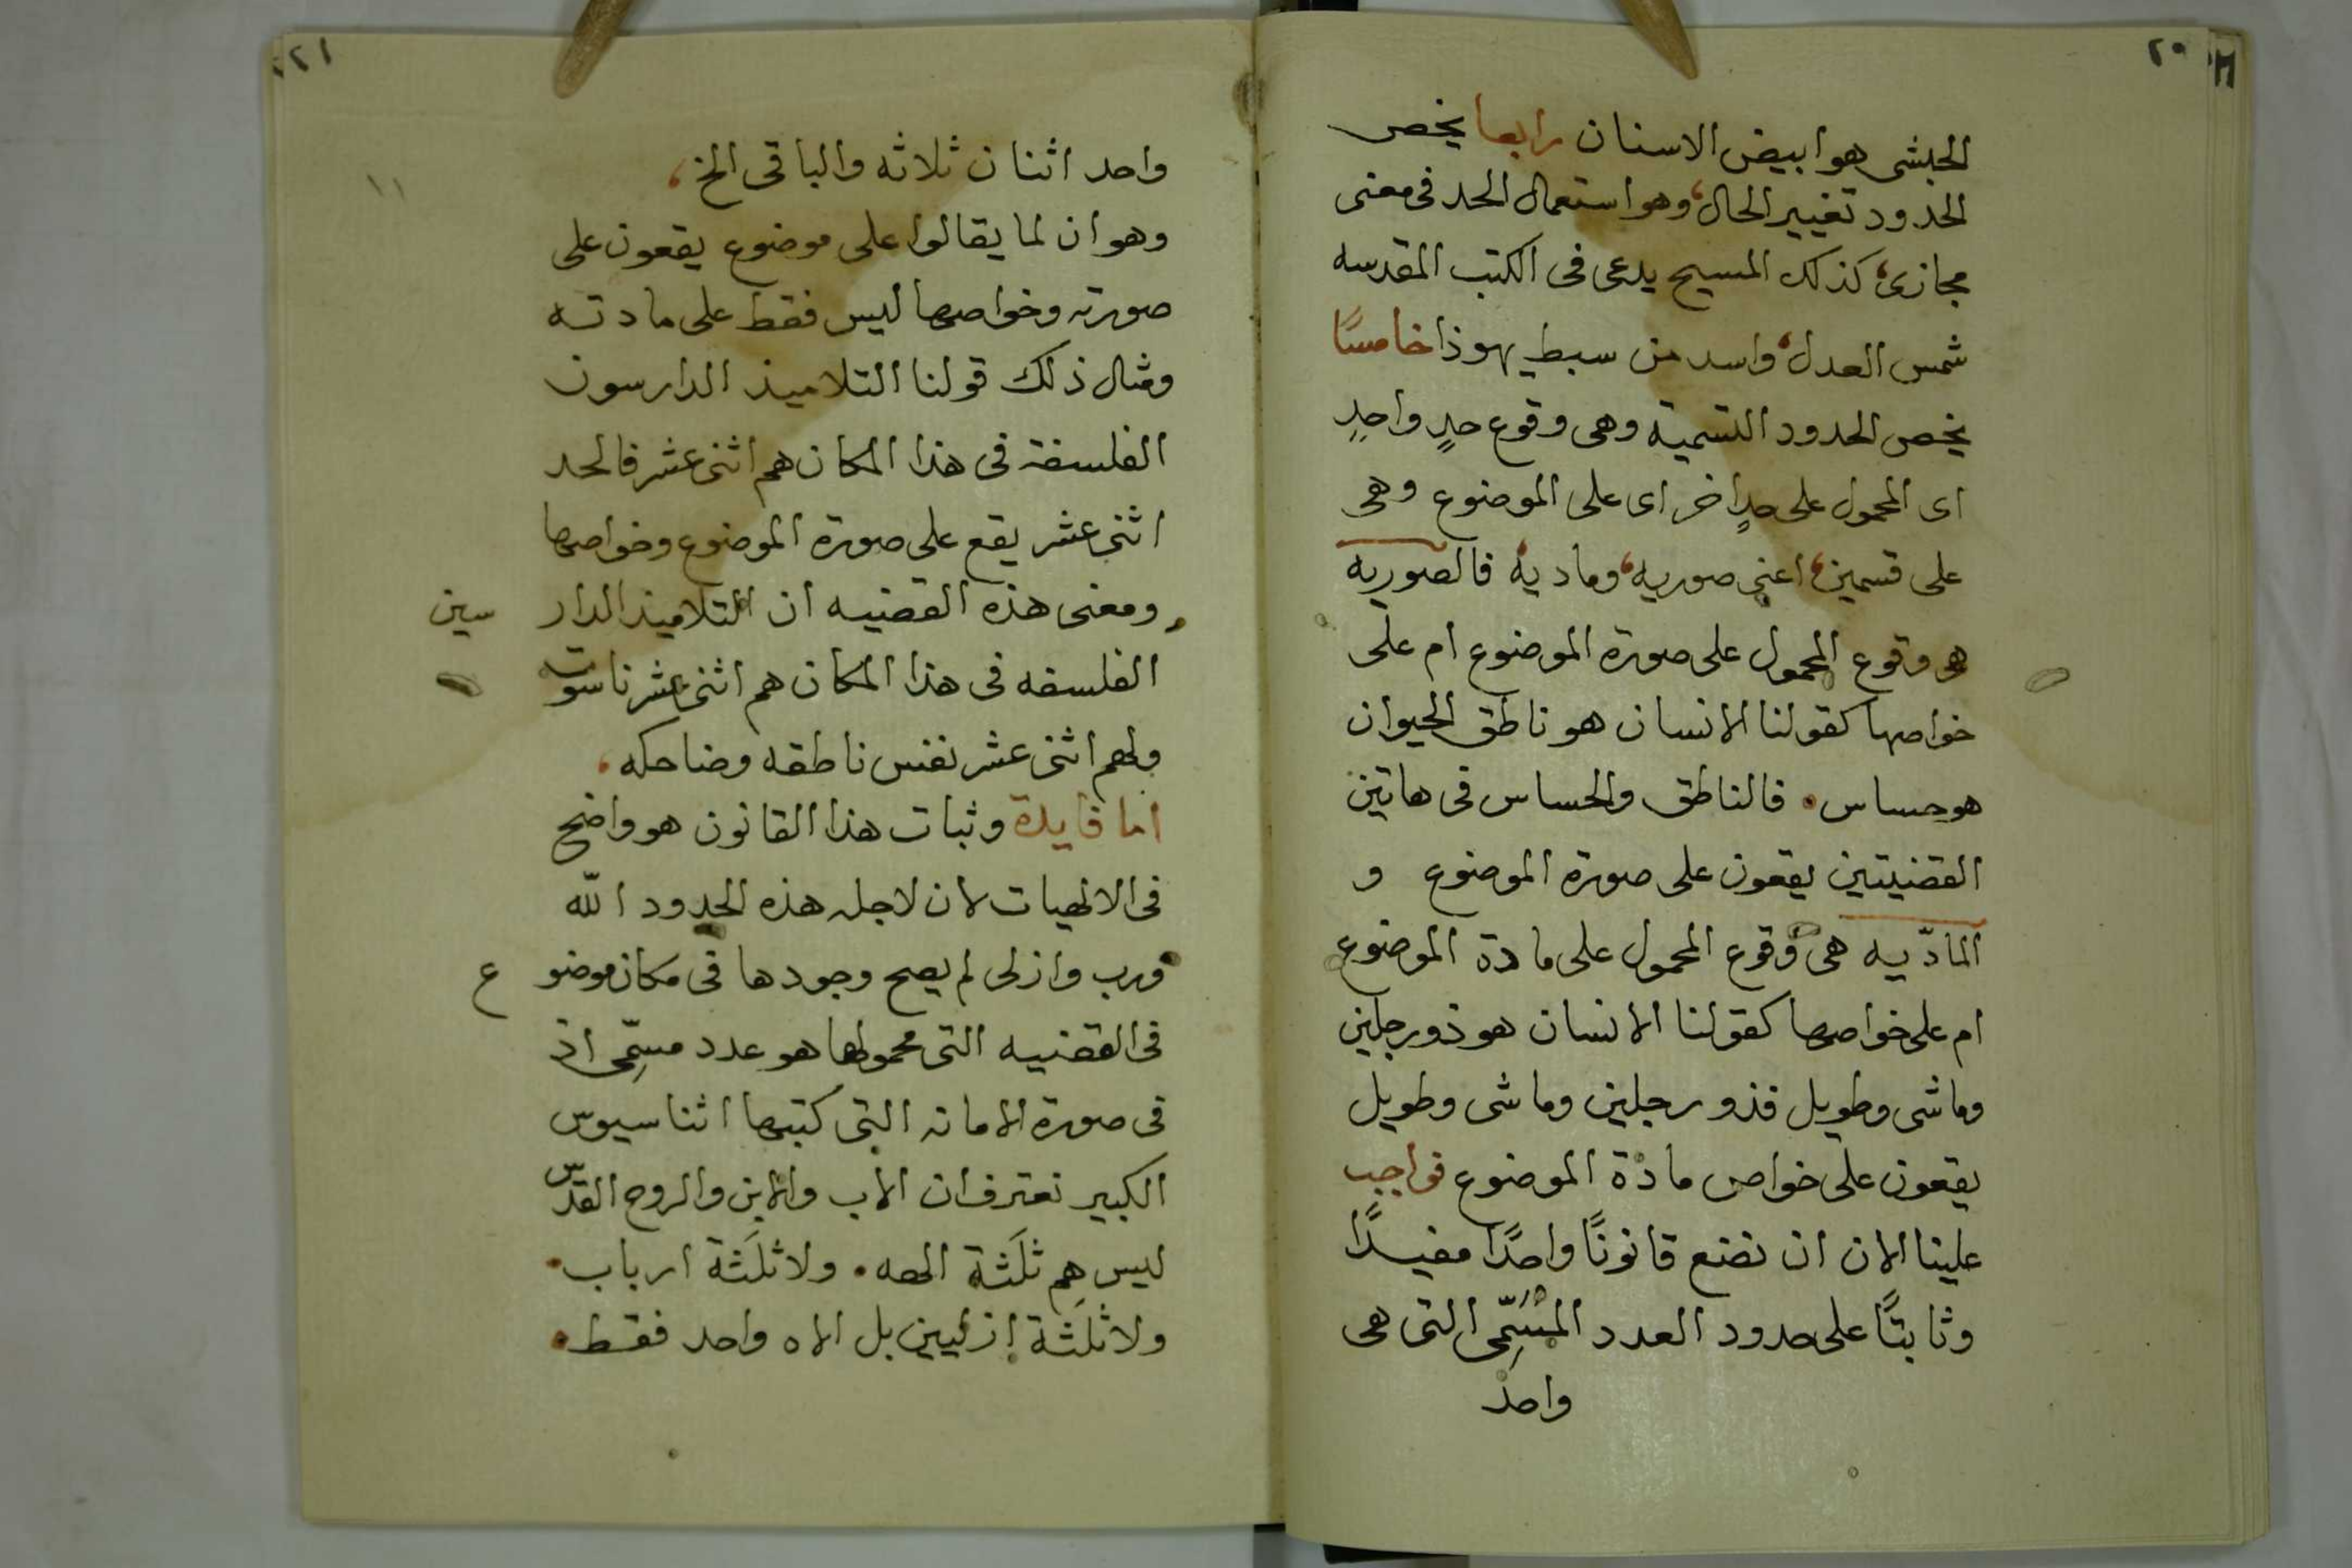 ٢٠
الحبشى هو ابيض الاسنان رابعا يخص
الحدود تغيير الحال، وهو استعمال الحد فى معنى
مجازى، كذلك المسيح يدعى فى الكتب المقدسه
شمس العدل، واسد من سبط يهوذا خامسًا
يخص الحدود التسمية وهى وقوع حدٍ واحدٍ
اى المحمول على حدٍ اخر اى على الموضوع وهى
على قسمين، اعنى صوريه، وماديه فالصوريه
هو وقوع المحمول على صورة الموضوع ام على
خواصها كقولنا الانسان هو ناطق الحيوان
هو حساس. فالناطق والحساس فى هاتين
القضيتين يقعون على صورة الموضوع و
المادّيه هى وقوع المحمول على مادة الموضوع
ام على خواصها كقولنا الانسان هو ذو رجلين
وماشى وطويل فذو رجلين وماشى وطويل
يقعون على خواص مادة الموضوع فواجب
علينا الان ان نضع قانونًا واحدًا مفيدًا
وثابتًا على حدود العدد المسَمِّى التى هى
واحد
٢١
واحد اثنان ثلاثه والباقى الخ،
وهو ان لما يقالوا على موضوع يقعون على
صورته وخواصها ليس فقط على مادته
ومثال ذلك قولنا التلاميذ الدارسون
الفلسفة فى هذا المكان هم اثنى عشر فالحد
اثنى عشر يقع على صورة الموضوع وخواصها
ومعنى هذه القضيه ان التلاميذ الدارسين
الفلسفه فى هذا المكان هم اثنى عشر ناسوت
ولهم اثنى عشر نفس ناطقه وضاحكه.
اما فايدة وثبات هذا القانون هو واضح
فى الالهيات لان لاجله هذه الحدود الله
ورب وازلى لم يصح وجودها فى مكان موضوع
فى القضيه التى محمولها هو عدد مسِمّى اذ
فى صورة الامانه التى كتبها اثناسيوس
الكبير نعترف ان الاب والابن والروح القدس
ليس هم ثلَثة الهه. ولا ثلَثة ارباب.
ولا ثلَثة ازليين بل الاه واحد فقط.